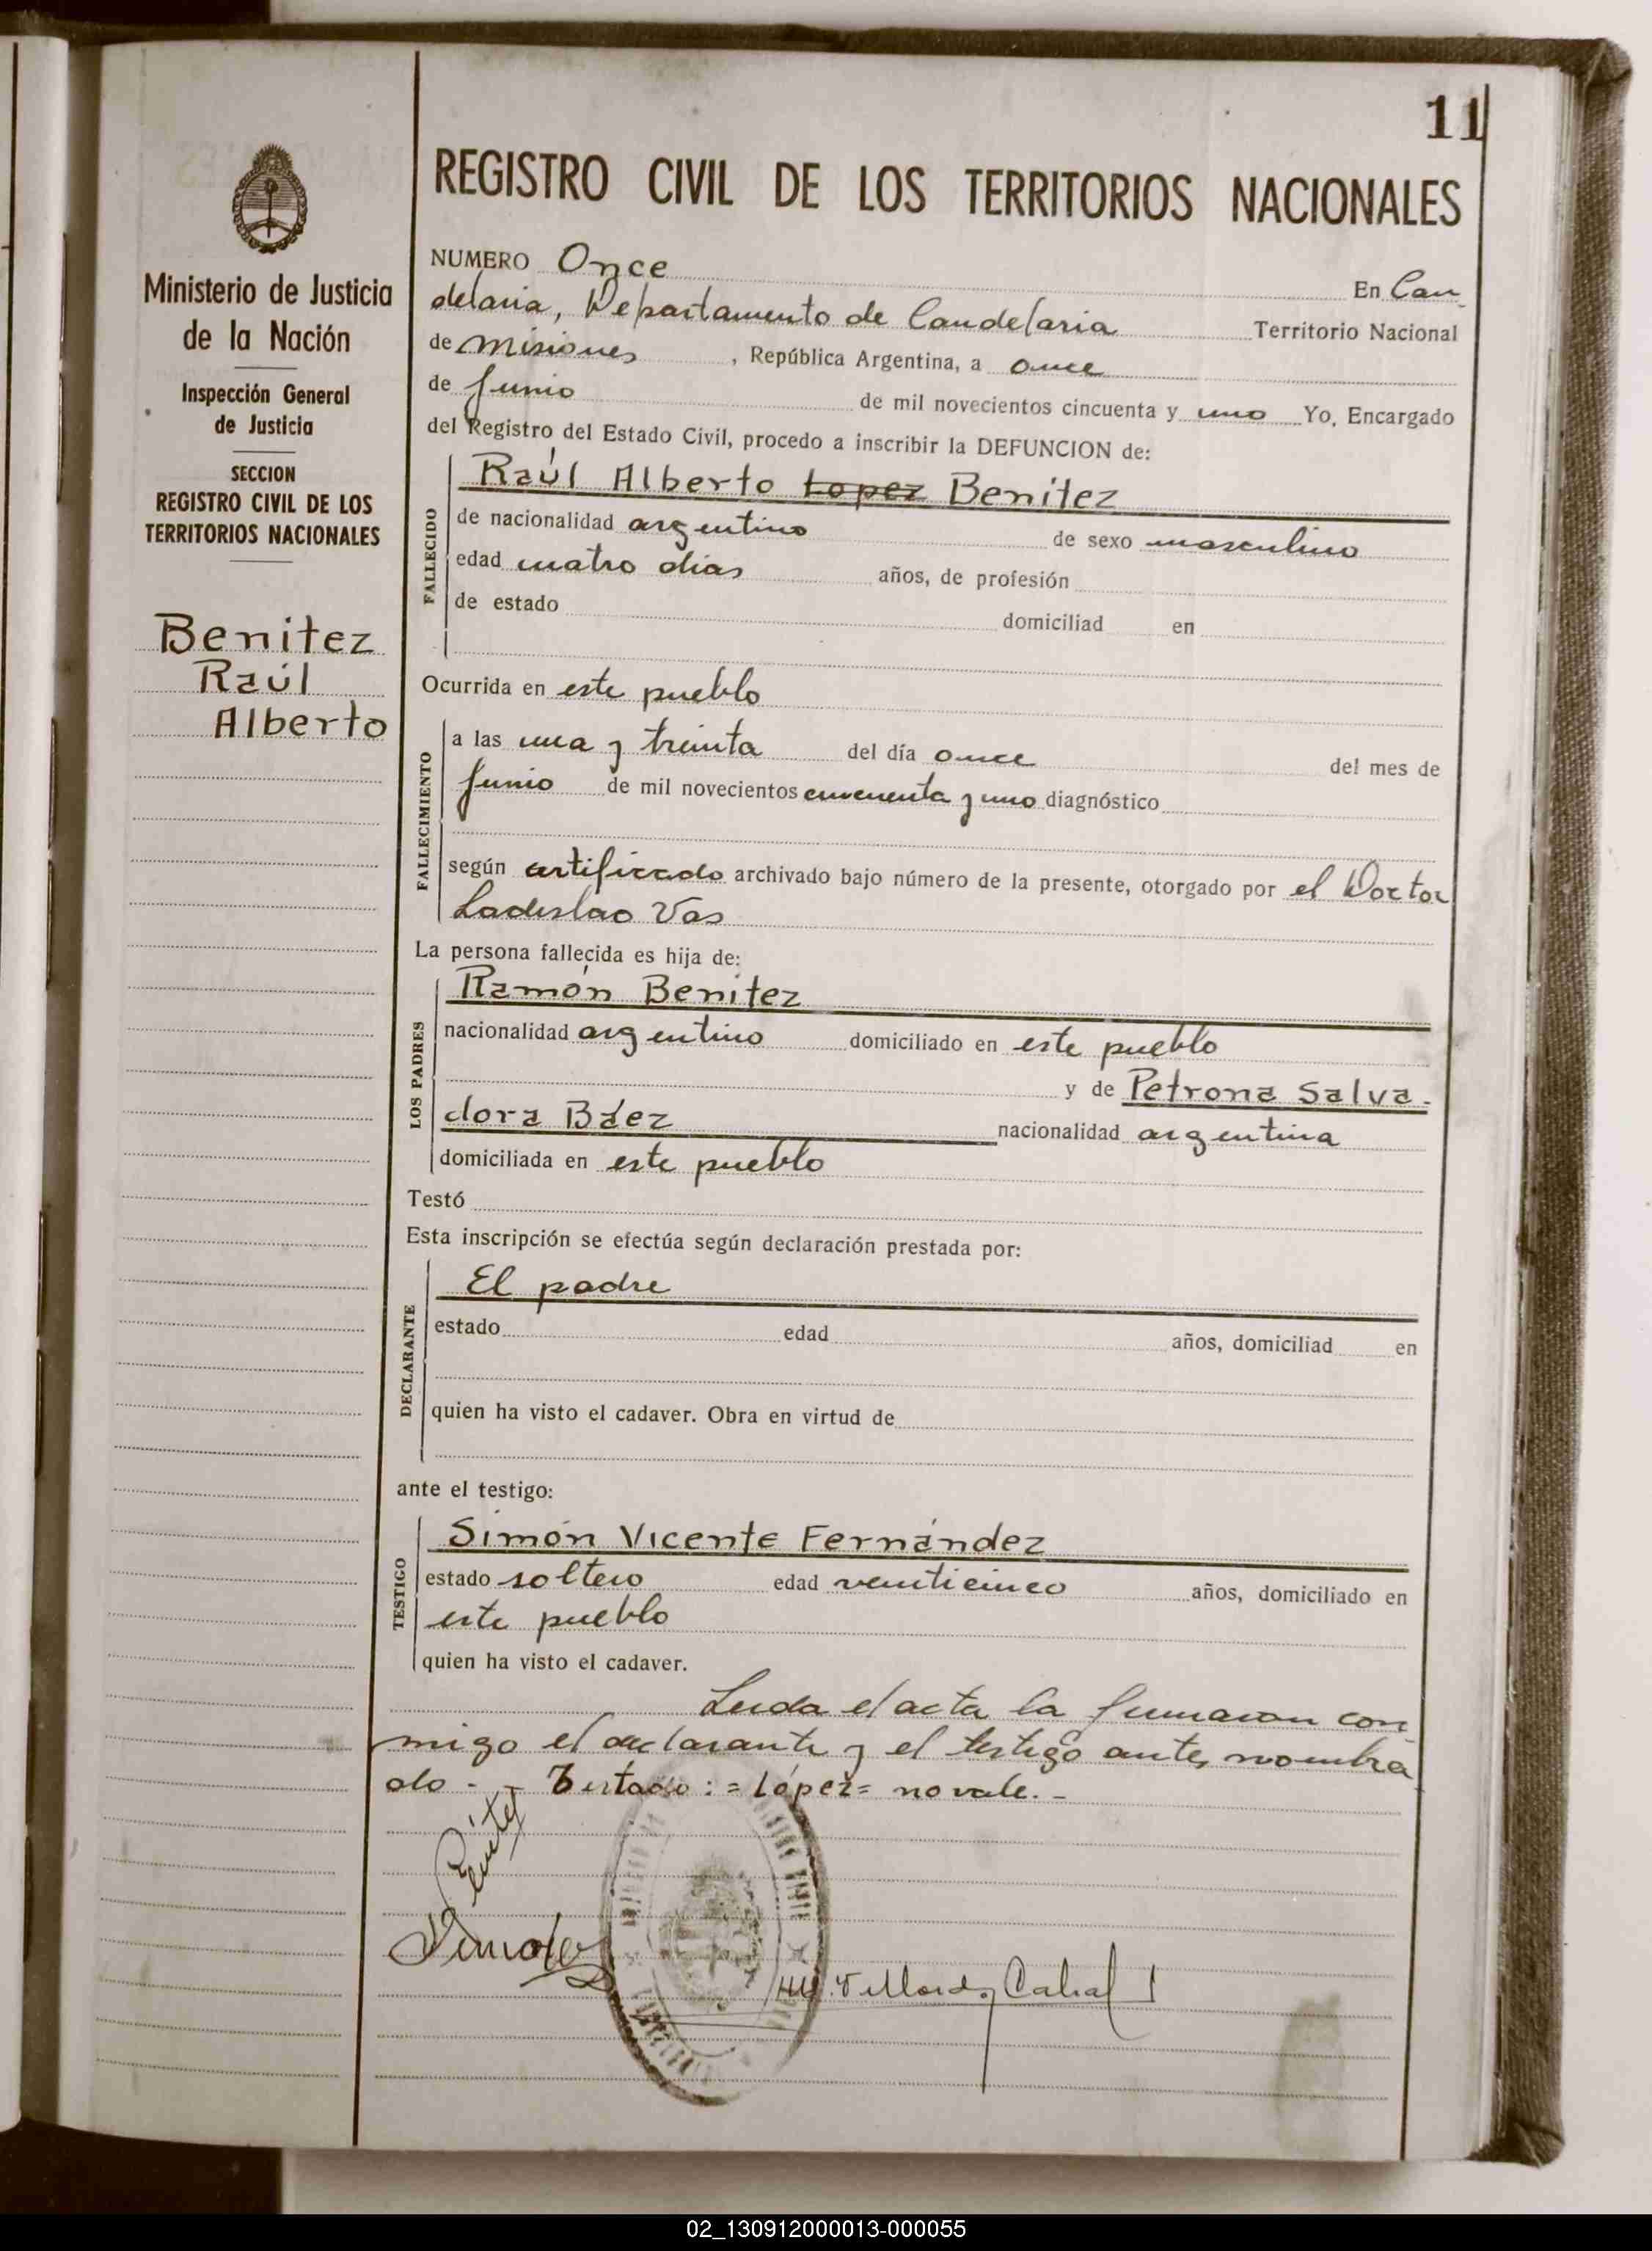 11
REGISTRO CIVIL DE LOS TERRITORIOS NACIONALES
Ministerio de Justicia
de la Nación
Inspección General
de Justicia
SECCION
REGISTRO CIVIL DE LOS
TERRITORIOS NACIONALES
Benitez
Raúl
Alberto
NUMERO Once En Can
delaria, Departamento de Candelaria Territorio Nacional
de Misiones, República Argentina, a once
de Junio de mil novecientos cincuenta y uno Yo, Encargado
del Registro del Estado Civil, procedo a inscribir la DEFUNCION de:
FALLECIDO
Raúl Alberto Lopez Benitez
de nacionalidad argentino de sexo masculino
edad cuatro dias años, de profesión
de estado domiciliad en
Ocurrida en este pueblo
FALLECIMIENTO
a las una y treinta del día once del mes de
Junio de mil novecientos cincuenta y uno diagnóstico
según certificado archivado bajo número de la presente, otorgado por el Doctor
Ladislao Vas
La persona fallecida es hija de:
LOS PADRES
Ramón Benitez
nacionalidad argentino domiciliado en este pueblo
y de Petrona Salva-
dora Báez nacionalidad argentina
domiciliada en este pueblo
Testó
Esta inscripción se efectúa según declaración prestada por:
DECLARANTE
El padre
estado edad años, domiciliad en
quien ha visto el cadaver. Obra en virtud de
ante el testigo:
TESTIGO
Simón Vicente Fernández
estado soltero edad veinticinco años, domiciliado en
este pueblo
quien ha visto el cadaver.
Leida el acta la firmaron con
migo el declarante y el testigo antes nombra
do.- - Testado: = López = no vale.-
Benitez
Cabral
02_130912000013-000055